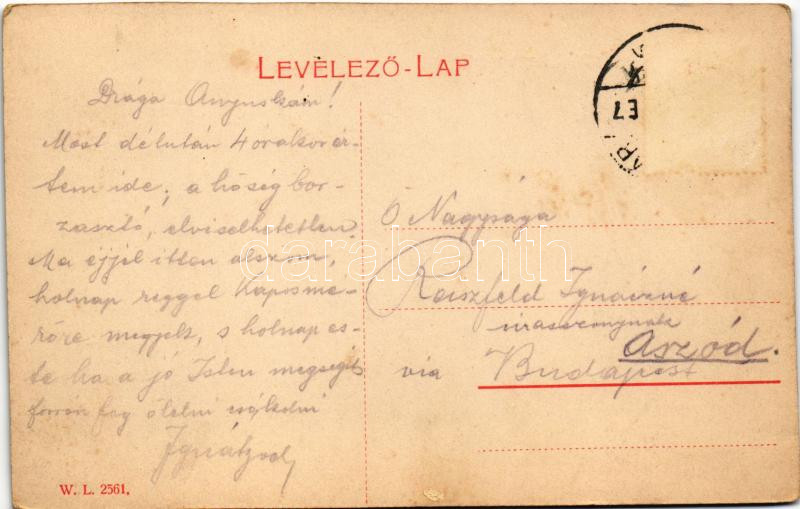 LEVELEZŐ-LAP
Drága Anyuskám!
Most délután 4 órakor ér-
tem ide, a hőség bor-
zasztó, elviselhetetlen.
Ma éjjel itten alszom,
holnap reggel Kaposme-
rőre megyek, s holnap es-
te ha a jó Isten megsegít
forrón fog ölelni csókolni
Ignátzod
Ő Nagysága
Reiszfeld Ignáczné
úrasszonynak
Aszód.
via Budapest
W. L. 2561.
darabanth